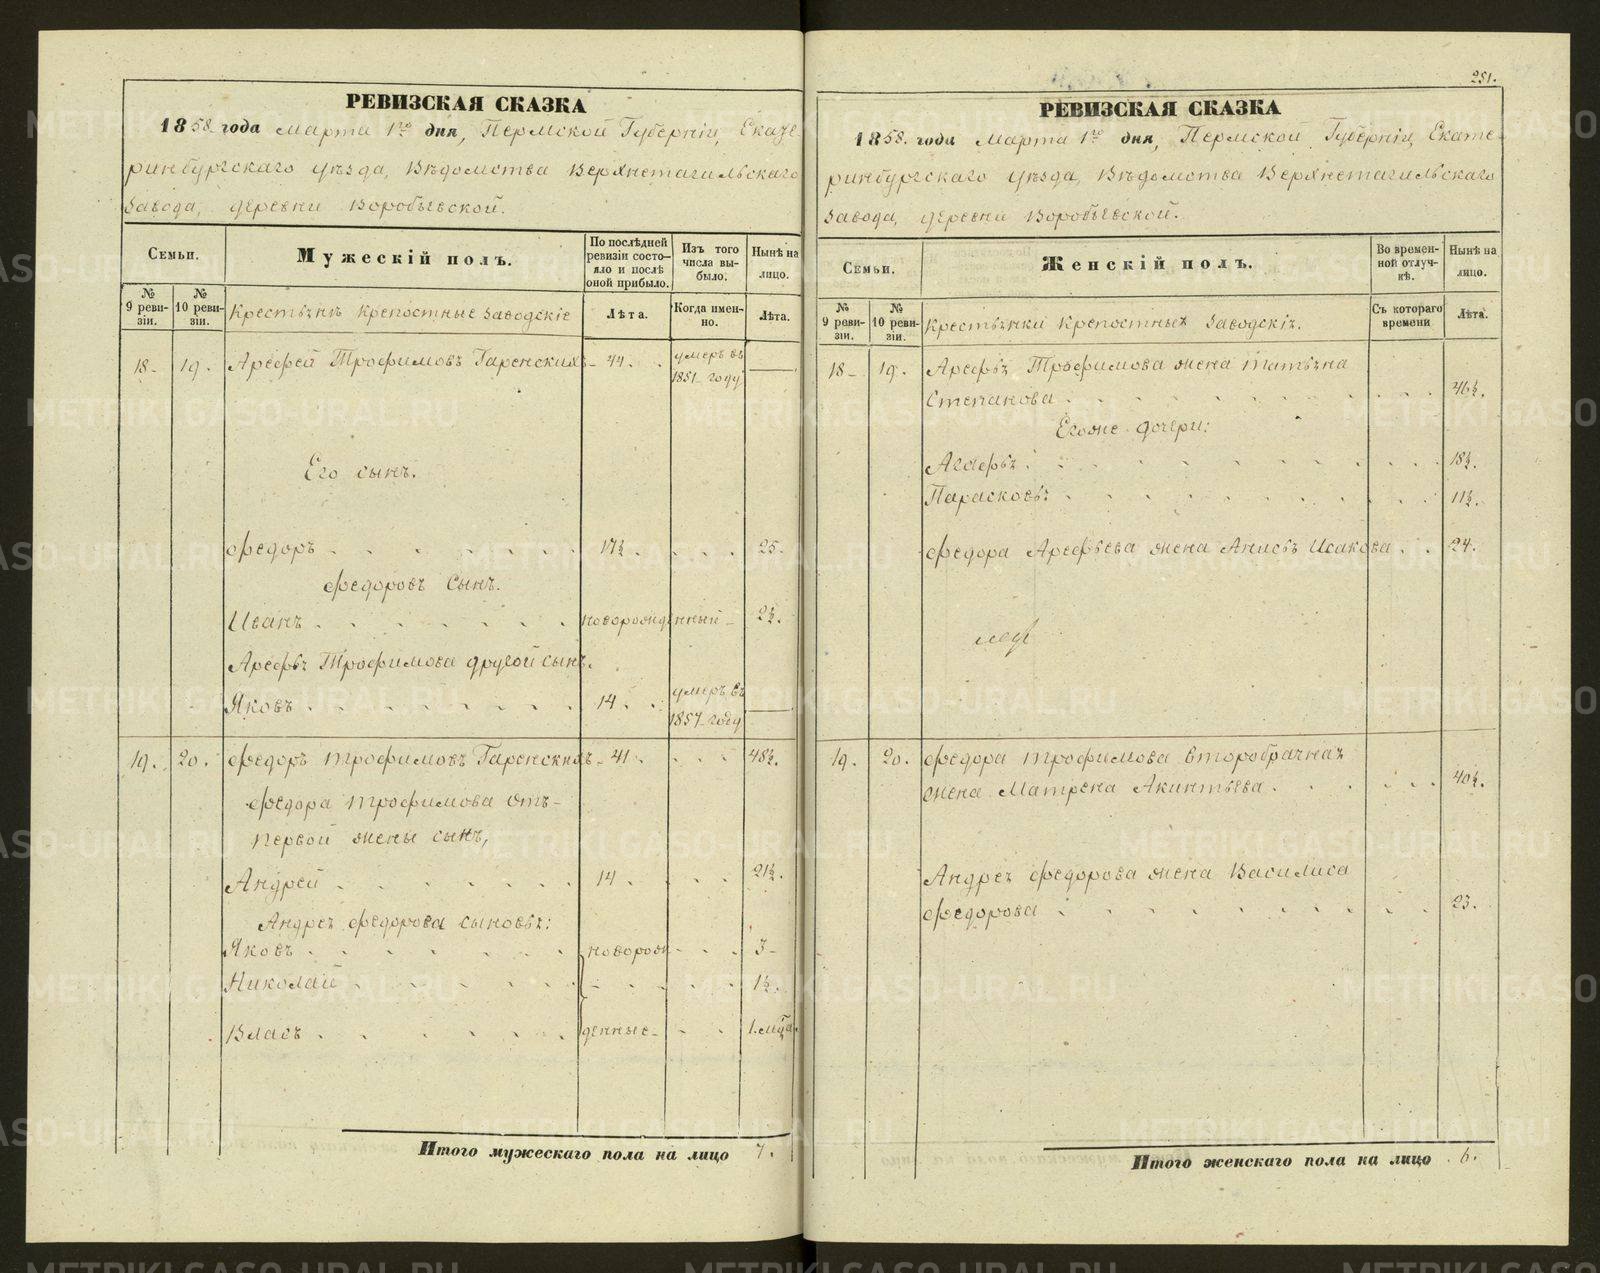 РЕВИЗСКАЯ СКАЗКА
1858 года Марта 1го дня, Пермской Губерніи, Екате-
ринбургскаго уѣзда, Вѣдомства Верхнетагильскаго
Завода, деревни Воробьевской.
Семьи.
Мужескій полъ.
По послѣдней ревизіи состо-яло и послѣ оной прибыло.
Изъ того числа вы-было.
Нынѣ на лицо.
№ 9 реви-зіи.
№ 10 реви-зіи.
Крестьянъ крепостные заводскіе
Лѣта.
Когда имен-но.
Лѣта.
18- 19. Арефей Трофимовъ Гаренскихъ- 44. умеръ въ 1851 году
Его сынъ.
Федоръ 17½. 25.
Федоровъ Сынъ.
Иванъ новорожденный- 2½.
Арефья Трофимова другой сынъ.
Яковъ 14. умеръ въ 1857 году
19. 20. Федоръ Трофимовъ Гаренскихъ- 41. 48½.
Федора Трофимова отъ-
первой жены сынъ,
Андрей 14. 21½.
Андрея Федорова сыновья:
Яковъ новорож- 3-
Николай 1½.
Власъ денные- 1. мца.
Итого мужескаго пола на лицо 7.
251.
РЕВИЗСКАЯ СКАЗКА
1858. года Марта 1го дня, Пермской Губерніи, Екате-
ринбургскаго уѣзда, Вѣдомства Верхнетагильскаго
Завода, деревни Воробьевской.
Семьи.
Женскій полъ.
Во времен-ной отлуч-кѣ.
Нынѣ на лицо.
№ 9 реви-зіи.
№ 10 реви-зіи.
Крестьянки крепостныя Заводскія.
Съ котораго времени
Лѣта.
18- 19. Арефья Трофимова жена Татьяна
Степанова 46½.
Егоже дочери:
Агафья 18½.
Парасковья 11½.
Федора Арефьева жена Анисья Исакова 24.
19. 20. Федора Трофимова второбрачная
жена Матрена Акинтьева 40½.
Андрея Федорова жена Василиса
Федорова 23.
Итого женскаго пола на лицо 6.
METRIKI.GASO-URAL.RU